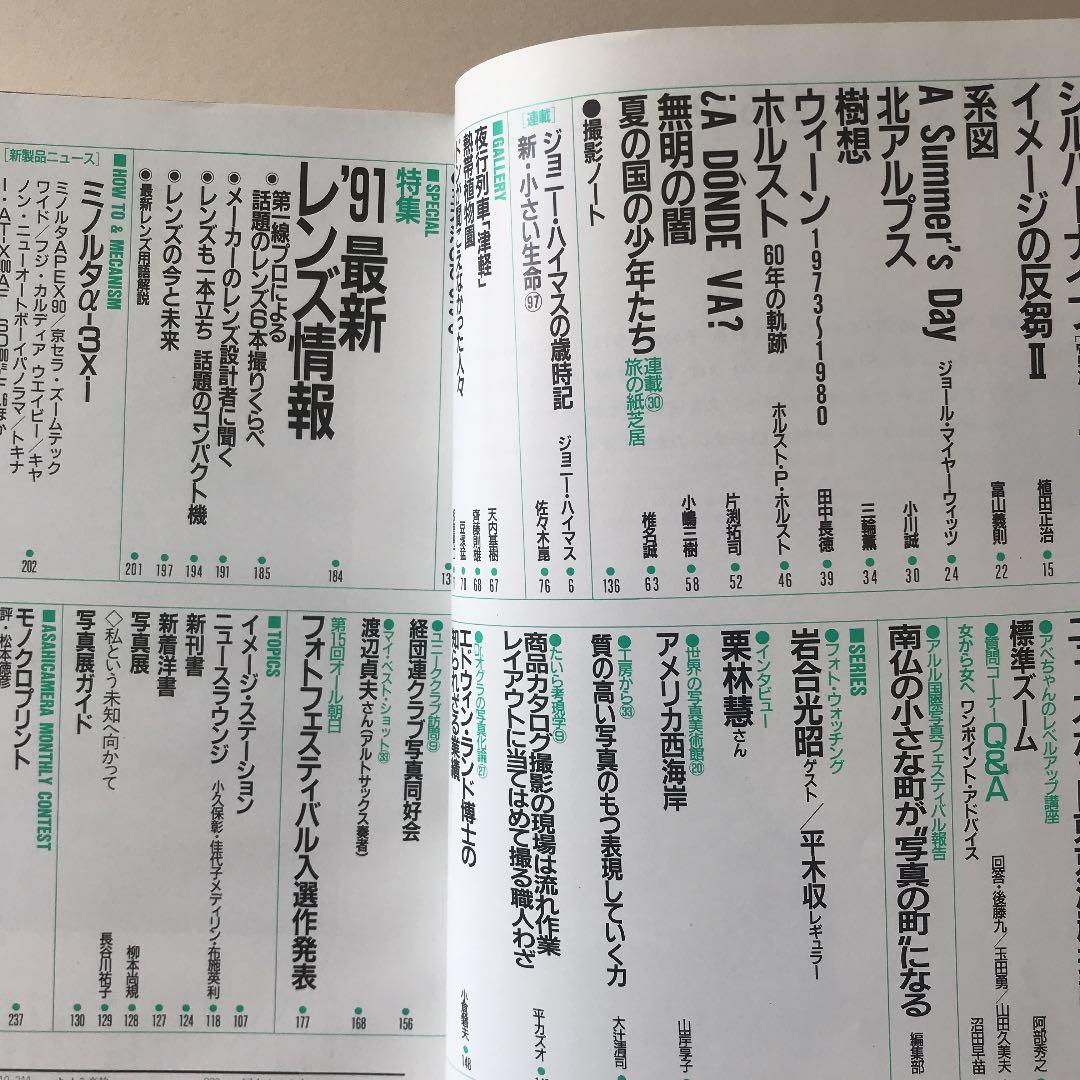 イメージの反芻Ⅱ
植田正治 ● 15
系図
富山義則 ● 22
A Summer's Day
ジョール・マイヤーウィッツ ● 24
北アルプス
小川誠 ● 30
樹想
三輪薫 ● 34
ウィーン1973〜1980
田中長徳 ● 39
ホルスト 60年の軌跡
ホルスト・P・ホルスト ● 46
¿A DÓNDE VA?
片渕拓司 ● 52
無明の闇
小嶋三樹 ● 58
夏の国の少年たち
連載㉚
旅の紙芝居
椎名誠 ● 63
●撮影ノート
● 136
[連載]
ジョニー・ハイマスの歳時記
ジョニー・ハイマス ● 6
新・小さい生命 97
佐々木崑 ● 76
■GALLERY
夜行列車「津軽」
天内基樹 ● 67
熱帯植物園
齋藤則雄 ● 68
標準ズーム
●アベちゃんのレベルアップ講座
阿部秀之
●質問コーナーQ&A
回答・後藤九/玉田勇/山田久美夫
女から女へ ワンポイント・アドバイス
沼田早苗
●アルル国際写真フェスティバル報告
南仏の小さな町が"写真の町"になる
編集部
■SERIES
●フォト・ウォッチング
岩合光昭 ゲスト/平木収 レギュラー
●インタビュー
栗林慧さん
●世界の写真美術館⑳
アメリカ西海岸
山岸享子
●工房から㉝
質の高い写真のもつ表現していく力
大辻清司
●たいら考現学⑨
商品カタログ撮影の現場は流れ作業
レイアウトに当てはめて撮る職人わざ
平カズオ
エドウィン・ランド博士の
知られざる業績
148
■SPECIAL
特集
'91最新
レンズ情報
● 184
●第一線プロによる
話題のレンズ6本撮りくらべ
● 185
●メーカーのレンズ設計者に聞く
● 191
●レンズも一本立ち 話題のコンパクト機
● 194
●レンズの今と未来
● 197
●最新レンズ用語解説
● 201
■HOW TO & MECANISM
ミノルタα-3xi
● 202
[新製品ニュース]
ミノルタAPEX90/京セラ・ズームテック
ワイド/フジ・カルディア ウエイビー/キヤ
ノン・ニューオートボーイパノラマ/トキナ
●ユニーククラブ訪問⑨
経団連クラブ写真同好会
● 156
●マイ・ベスト・ショット㉝
渡辺貞夫さん(アルトサックス奏者)
● 168
第15回オール朝日
フォトフェスティバル入選作発表
● 177
■TOPICS
イメージ・ステーション
● 107
ニュースラウンジ
小久保彰・佳代子メディリン・布施英利 ● 118
新刊書
● 124
新着洋書
● 127
写真展
柳本尚規 ● 128
◇私という未知へ向かって
長谷川祐子 ● 129
写真展ガイド
● 130
■ASAHICAMERA MONTHLY CONTEST
モノクロプリント
● 237